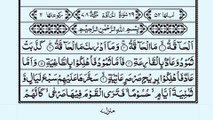 بِسْمِ اللَّهِ الرَّحْمَٰنِ الرَّحِيمِ
الْحَاقَّةُ مَا الْحَاقَّةُ وَمَا أَدْرَاكَ مَا الْحَاقَّةُ كَذَّبَتْ
ثَمُودُ وَعَادٌ بِالْقَارِعَةِ فَأَمَّا ثَمُودُ فَأُهْلِكُوا بِالطَّاغِيَةِ وَأَمَّا
عَادٌ فَأُهْلِكُوا بِرِيحٍ صَرْصَرٍ عَاتِيَةٍ سَخَّرَهَا عَلَيْهِمْ سَبْعَ لَيَالٍ وَ
ثَمَانِيَةَ أَيَّامٍ حُسُومًا فَتَرَى الْقَوْمَ فِيهَا صَرْعَىٰ كَأَنَّهُمْ